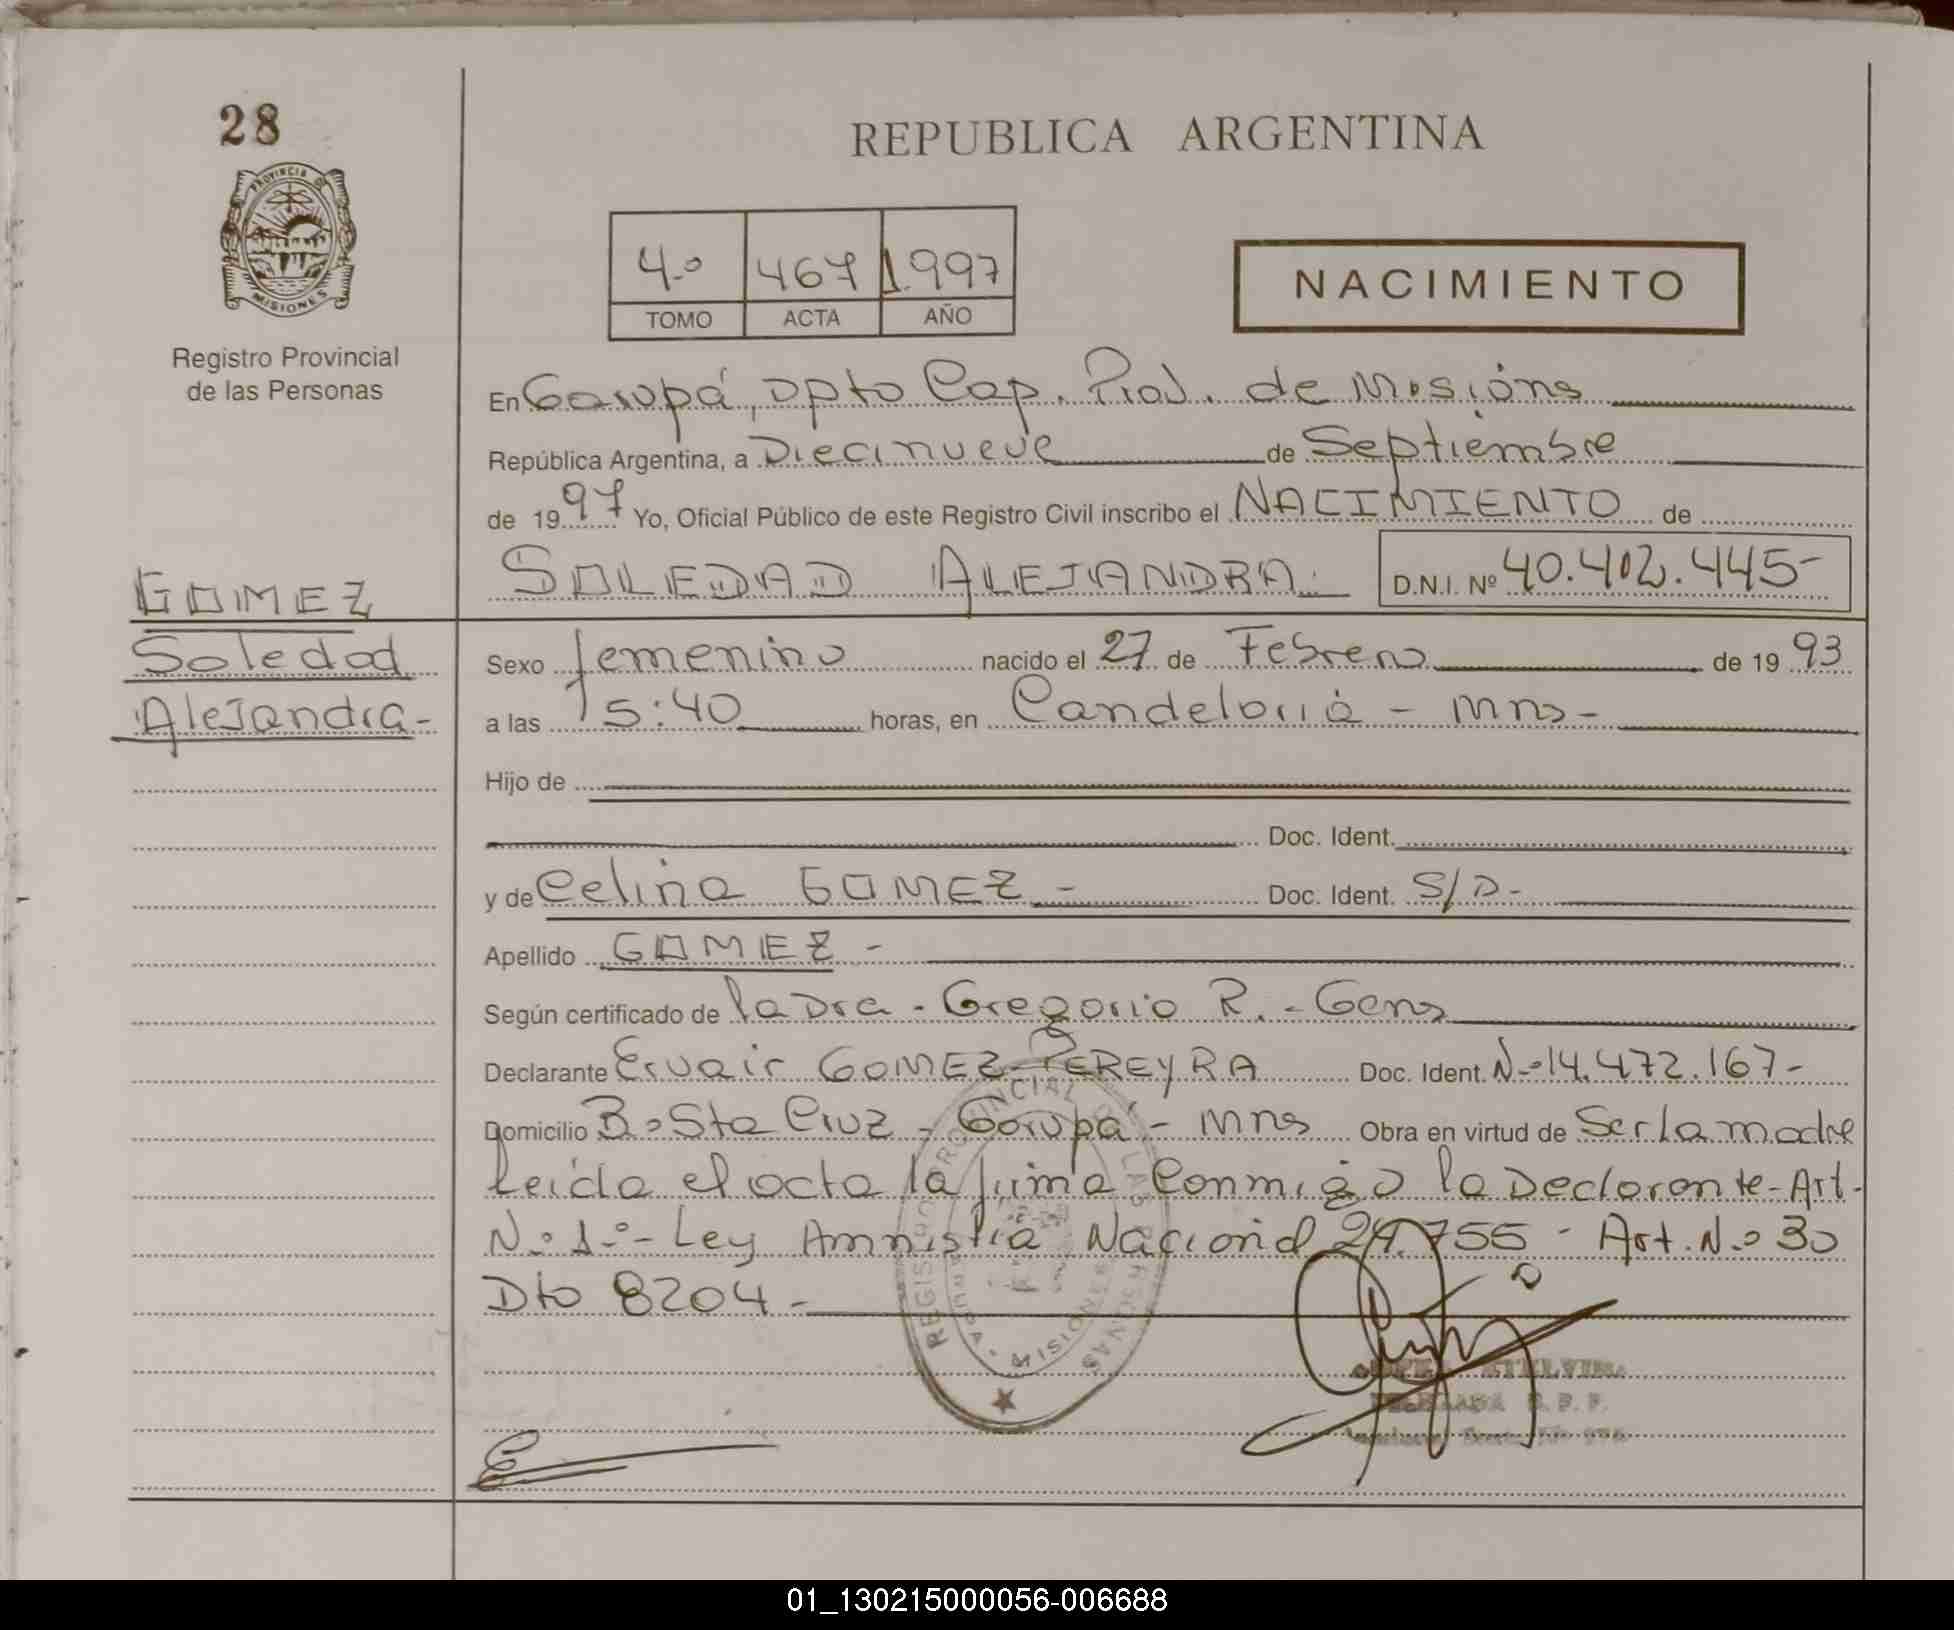 28
REPUBLICA ARGENTINA
PROVINCIA DE
MISIONES
4.º 467 1997
TOMO ACTA AÑO
NACIMIENTO
Registro Provincial
de las Personas
En Garupá, Dpto Cap. Prov. de Misiónes
República Argentina, a Diecinueve de Septiembre
de 1997 Yo, Oficial Público de este Registro Civil inscribo el NACIMIENTO de
SOLEDAD ALEJANDRA D.N.I. Nº 40.402.445-
GOMEZ
Soledad
Alejandra-
Sexo femenino nacido el 27 de Febrero de 1993
a las 15:40 horas, en Candelaria - Mns-
Hijo de
Doc. Ident.
y de Celina GOMEZ - Doc. Ident. S/D-
Apellido GOMEZ -
Según certificado de la Dra - Gregorio R. -
Declarante Ervair GOMEZ PEREYRA Doc. Ident. N.º 14.472.167-
Domicilio B.º Sta Cruz - Garupá - Mns Obra en virtud de Ser la madre
Leida el acta la firma Conmigo la Declarante - Art-
N.º 1.º - Ley Amnistia Nacional 24.755 - Art. N.º 30
Dto 8204 -
REGISTRO PROVINCIAL DE LAS PERSONAS
GARUPA
MISIONES
ETELVINA
DELEGADA R. P. P.
01_130215000056-006688